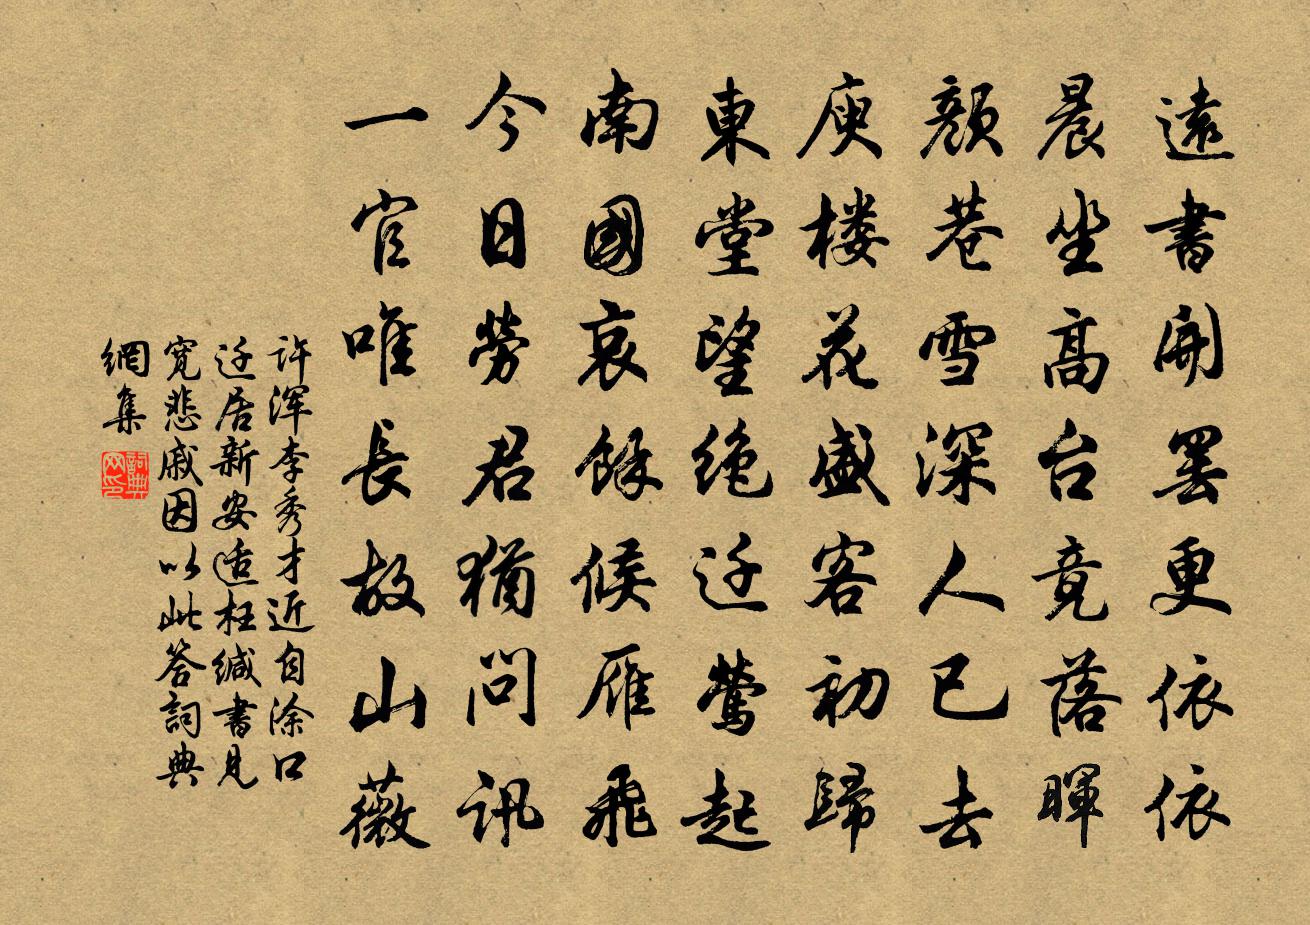 遠書開罷更依依
晨坐高台竟落暉
顏巷雪深人已去
庾楼花盛客初歸
東堂望絶迁鶯起
南國哀餘候雁飛
今日勞君猶問訊
一官唯長故山薇
許浑李秀才近自涂口
迁居新安适枉緘書見
寬悲戚因以此答詞典
網集
詞典网印